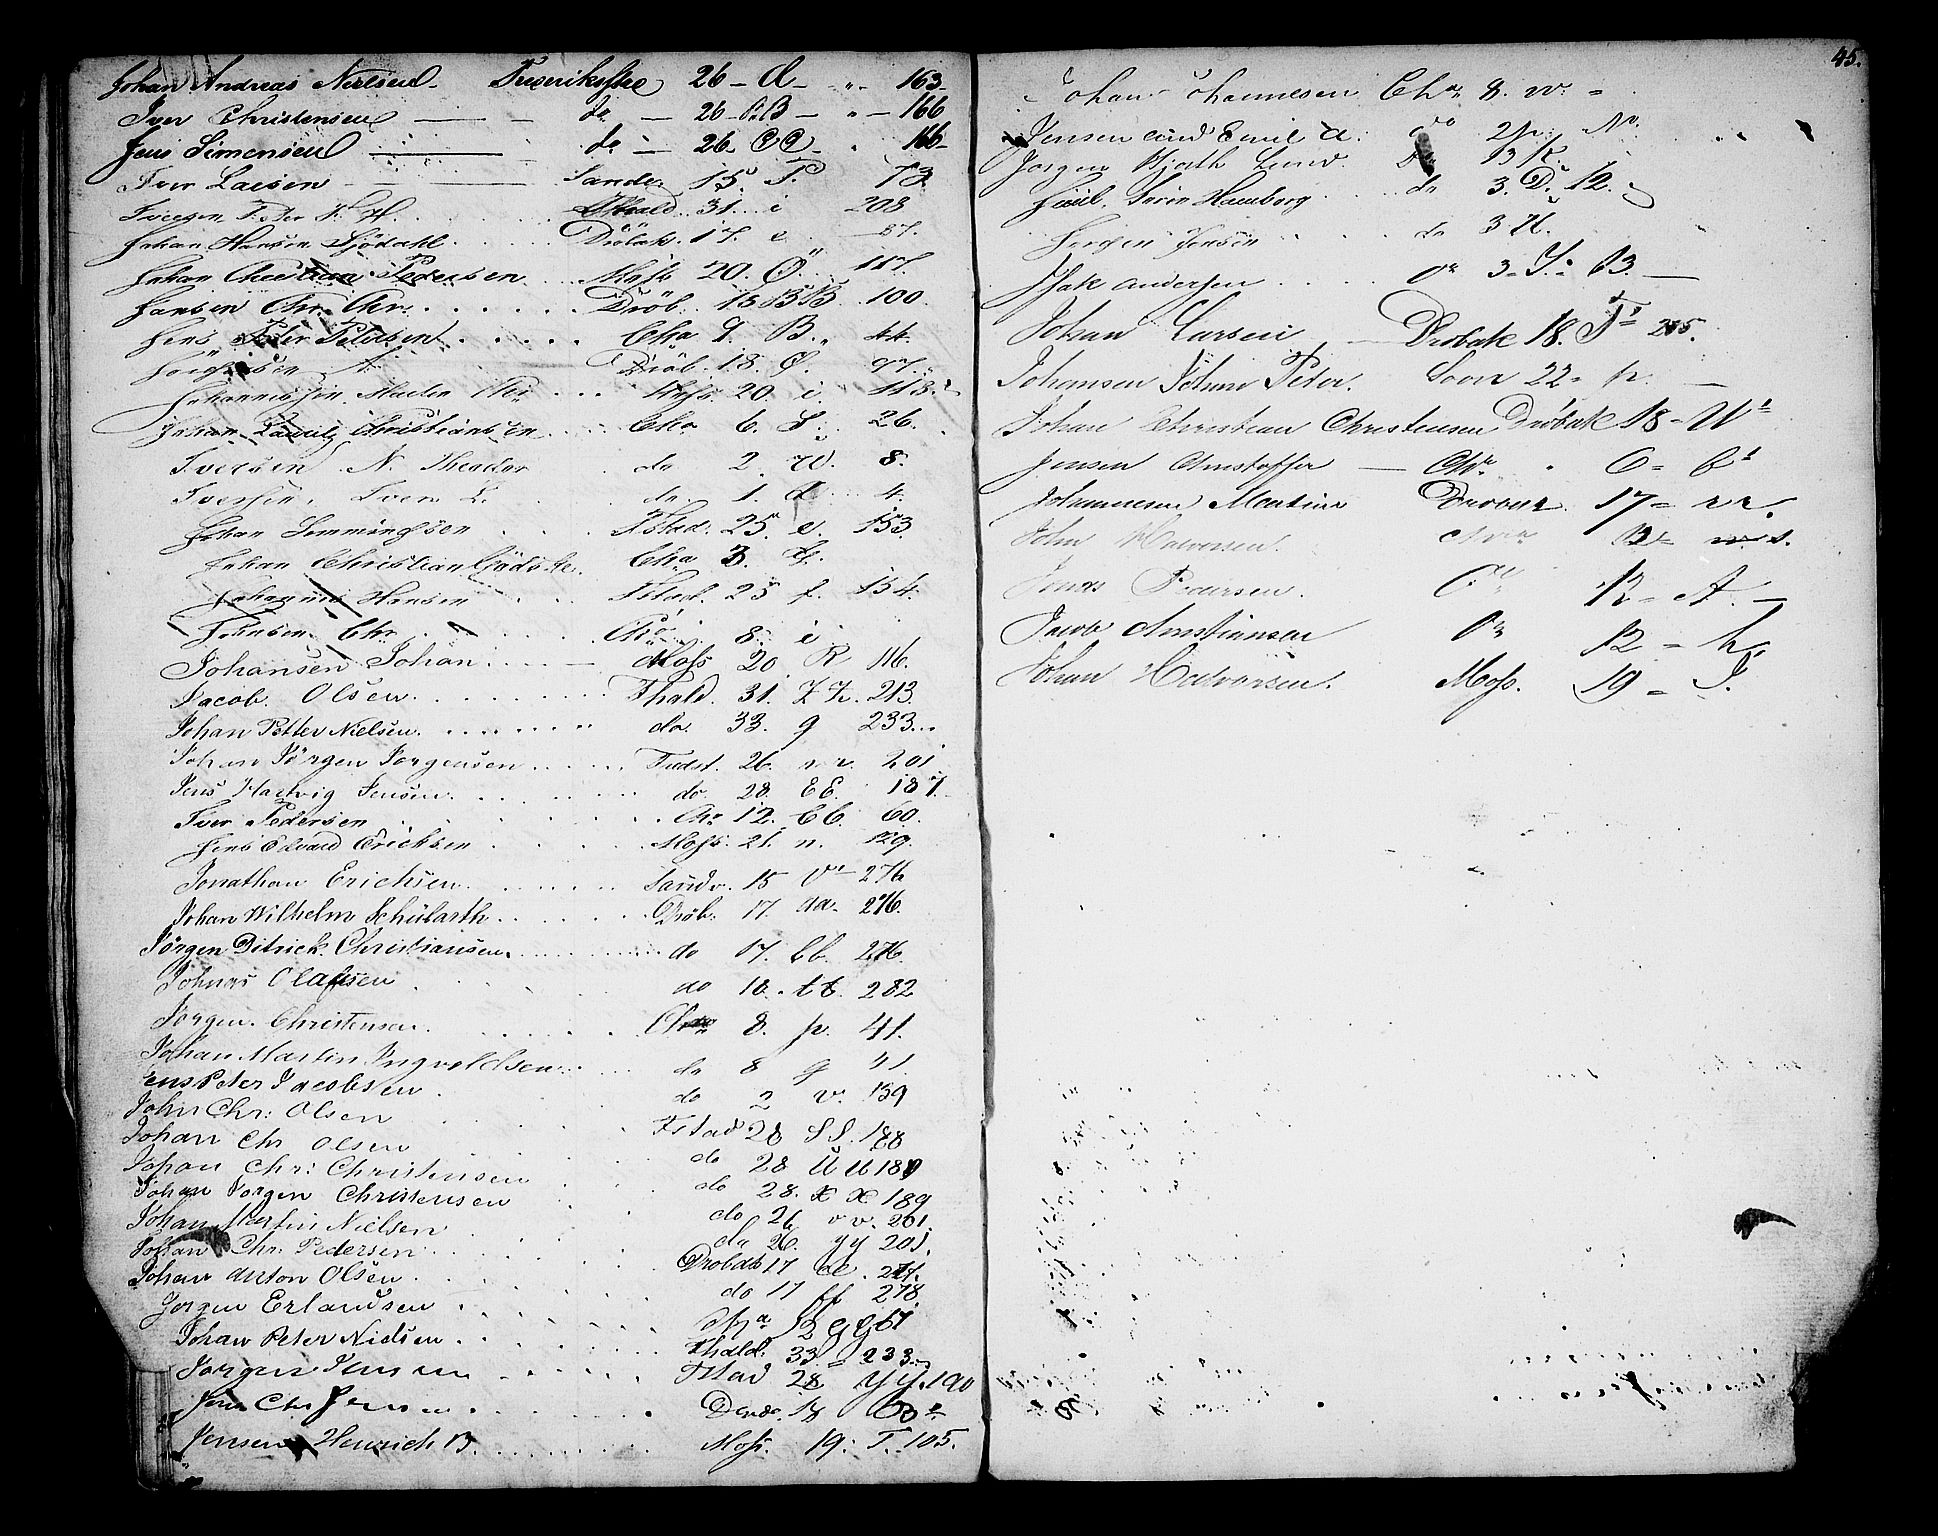 Johan Andreas Nielsen - Frederikste 26 - A - " - 163
Iver Christensen — do — 26 - BB - " - 166
Jens Simensen — do — 26 CC - 166
Iver Laesen — Sande 15. P. 73
31. i 208
Johan Hansen Sjödahl Dröbak. 17. e 87.
Johan Christian Pedersen Moss 20. Ø. 117.
Hansen Chr. Chr. Dröb. 18 BB. 100.
Jens Peter Petersen Cha 9. B. 44.
Dröb. 18. Ø. 97.
Johannessen Martin Moss. 20. i. 113.
Johan Lauritz Christiansen Cha 6. S. 26.
Iversen N. Theodor do 2. W. 8.
Iversen, Iver L. do. 1. d. 4.
Johan Simmingsen Fstad. 25. e. 153.
Johan Christian Cha 3.
Johannes Hansen Fstad. 25 f. 154.
Johnsen Chr. Cha 8. i
Johansen Johan. Moss 20 R 116.
Jacob Olsen Fhald. 31. Z Z. 213.
Johan Petter Nielsen. do. 33. g 233.
Johan Jörgen Jorgensen Fredst. 26. r r. 201
Jens Hartvig Jensen. do. 28. EE. 187.
Iver Pedersen Cha 12. bb. 60.
Jens Edvard Ericksen Moss. 21. n. 129.
Jonathan Erichsen Sandv. 15 V 276
Johan Wilhelm Schülarth Dröb. 17. aa. 276.
Jörgen Ditrick Christiansen. do 17. bb. 276.
Johnas Olausen do 18. tt. 282
Jorgen. Christensen. Cha 8. p. 41.
Johan Martin Ingvoldsen do 8 q 41
Jens Peter Jacobsen do 2 v. 139
John Chr: Olsen Fstad 28 SS. 188
Johan Chr Olsen do 28 UU 189
Johan Chr: Christensen do 28. X X 189
Johan Jorgen Christensen do 26 vv. 201.
Johan Martin Nielsen do 26. yy 201.
Johan Chr. Pedersen Drobak 17 ee. 277.
Johan Anton Olsen do 17 ff 278.
Jorgen Erlandsen Cha 12 gg 61.
Johan Peter Nielsen Fhald. 33. = 233.
Jorgen Jensen Fstad 28 YY. 190
Jens Chr Jensen 18
Jensen Henrich B. Moss. 19. T. 105.
45.
Johan Johannesen Cha 8. w. =
Jensen Emil A. do 2
Jorgen Hjorth Lund. Do 13 K.
Juul. Sörin Hamborg do 3. D. 12.
Jorgen Jensen do 3 U.
Isak Andersen do 3 = S. 13. —
Johan Larsen — Drobak 18. T = 285.
Johansen Johan Peter. Soon 22 = p. —
Johan Christian Christensen Dröbak 18 = U
Jensen Christoffer — Cha 6 = b
Johannesen Martin Drobak 17 = rr.
John Halvorsen. Chra 12 = s.
Jonas Pedersen. do 12 = A. —
Jacob Christiansen do 12 = h,
Johan Halvorsen. Moss. 19 = I.